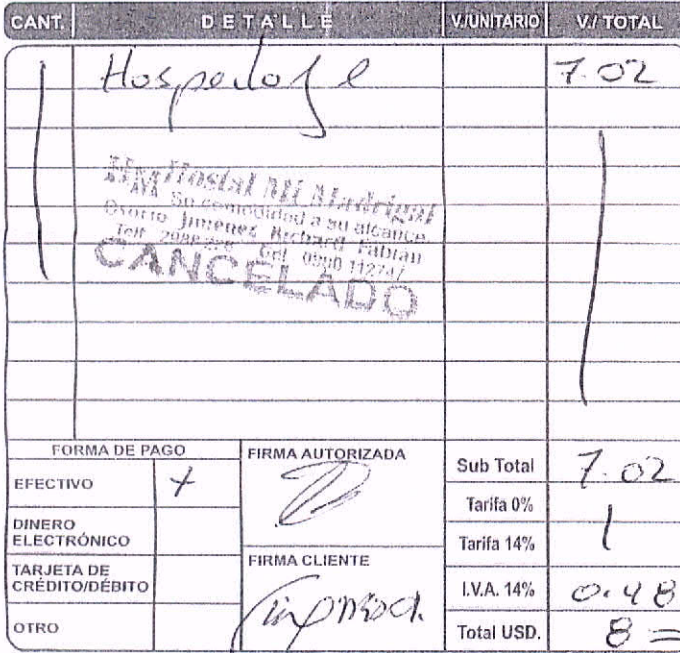 CANT. DETALLE V./UNITARIO V./ TOTAL
Hospedaje 7.02
Hostal Mi Madrigal
Su comodidad a su alcance
Osorio Jimenez Richard Fabian
CANCELADO
FORMA DE PAGO
EFECTIVO
DINERO ELECTRÓNICO
TARJETA DE CRÉDITO/DÉBITO
OTRO
FIRMA AUTORIZADA
FIRMA CLIENTE
Sub Total 7.02
Tarifa 0%
Tarifa 14%
I.V.A. 14% 0.48
Total USD. 8=